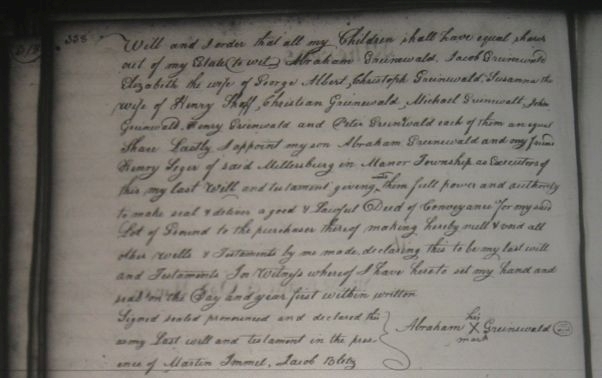 358
Will and I order that all my Children shall have equal shares
out of my Estate (to wit) Abraham Greinewald, Jacob Greinewald
Elizabeth the wife of George Albert, Christoph Greinewald, Susanna the
wife of Henry Christian Greinewald, Michael Greinewalt, John
Greinewald, Henry Greinewald and Peter Greinwald each of them an equal
Share Lastly I appoint my son Abraham Greenewald and my friend
Henry of said Millersburg in Manor Township as Executors of
this my last Will and testament giving Them full power and authority
to make seal & deliver a good & Lawful Deed of Conveyance for my said
Lot of Ground to the purchaser thereof making hereby null & void all
other wills & Testaments by me made, declaring this to be my last will
and Testament. In Witness whereof I have hereto set my hand and
seal on the Day and year first within written
Signed sealed pronounced and declared this
as my Last will and testament in the pres-
ence of Martin Immel, Jacob Blotz
his
Abraham X Greinewald
mark